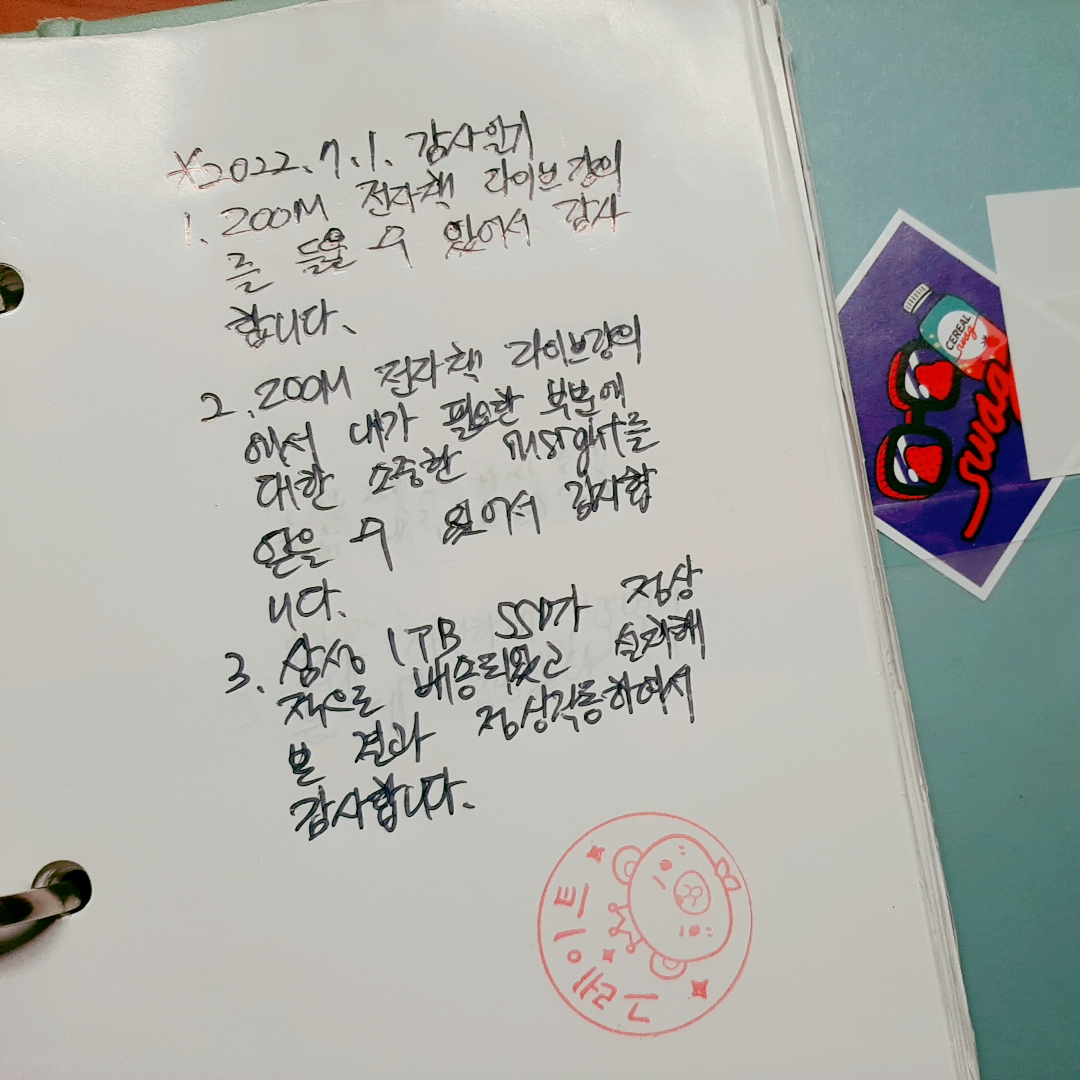 *2022.7.1. 감사일기
1. ZOOM 전자책 라이브강의
를 들을 수 있어서 감사
합니다.
2. ZOOM 전자책 라이브강의
에서 내가 필요한 부분에
대한 소중한 insight를
얻을 수 있어서 감사합
니다.
3. 삼성 1TB SSD가 정상
적으로 배송되었고 설치해
본 결과 정상작동하여서
감사합니다.
그레이트
CEREAL
swag
swag